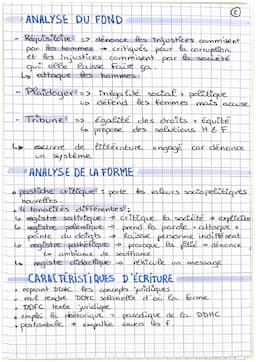 ANALYSE DU FOND
- Réquisitoire => dénonce les injustices commisent
par les hommes → critiqués pour la corruption
et les injustices commisent par la société
qui elle laisse faire ça
↳ attaque les hommes.
- Plaidoyer => inégalité social + politique
↳ défend les femmes mais accuse
- Tribune => égalité des droits + équité
↳ propose des solutions H & F
↳ oeuvre de littérature engagé car dénonce
un système
ANALYSE DE LA FORME
• pastiche critique : porte les valeurs sociopolitiques
nouvelles
• 4 tonalités différentes :
↳ registre satirique → critique la société + explicite
↳ registre polémique → prend la parole + attaque +
pointe du doigts → laisse personne indifférent
↳ registre pathétique → provoque la pitié + dénonce
↳ ambiance de souffrance
↳ registre didactique → véhicule un message
CARACTÉRISTIQUES D'ÉCRITURE
• reprend DDHC les concepts juridiques
• veut rendre DDFC solennelle d'où la forme
• DDFC texte juridique
• emploi la rhétorique → parodique de la DDHC
• postambule → empathie envers les f